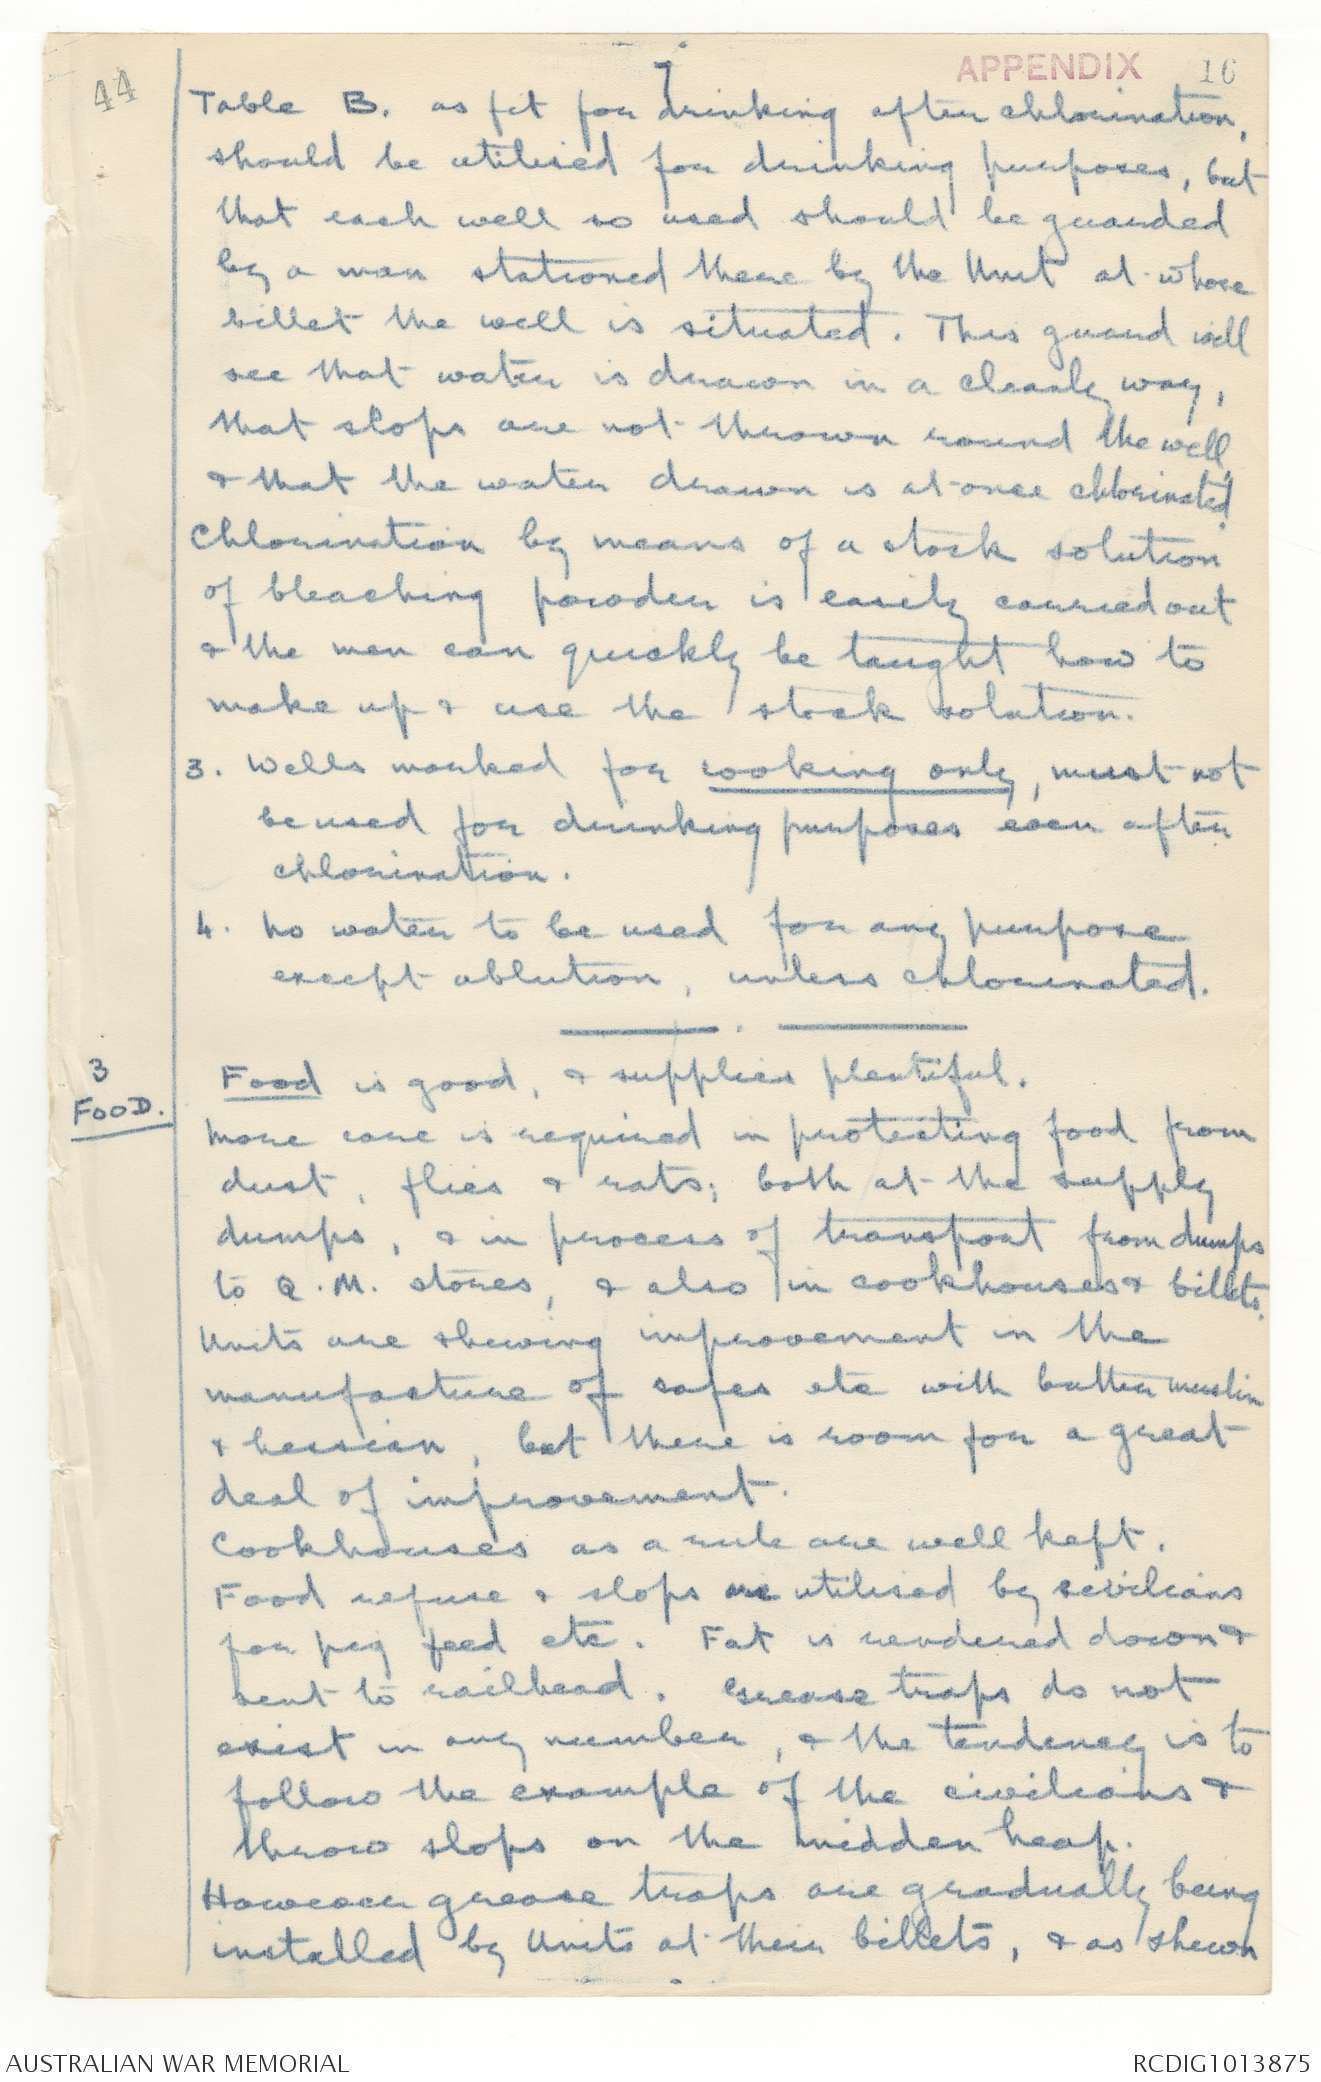 44
7
APPENDIX 16
Table B. as fit for drinking after chlorination,
should be utilised for drinking purposes, but
that each well so used should be guarded
by a man stationed there by the Unit at whose
billet the well is situated. This guard will
see that water is drawn in a cleanly way,
that slops are not thrown round the well,
& that the water drawn is at once chlorinated.
Chlorination by means of a stock solution
of bleaching powder is easily carried out
& the men can quickly be taught how to
make up & use the stock solution.
3. Wells marked for cooking only, must not
be used for drinking purposes even after
chlorination.
4. No water to be used for any purpose
except ablution, unless chlorinated.
3
FOOD.
Food is good, & supplies plentiful.
More care is required in protecting food from
dust, flies & rats; both at the supply
dumps, & in process of transport from dumps
to Q.M. stores, & also in cookhouses & billets.
Units are shewing improvement in the
manufacture of safes etc with butter muslin
& hessian, but there is room for a great
deal of improvement.
Cookhouses as a rule are well kept.
Food refuse & slops are utilised by civilians
for pig feed etc. Fat is rendered down &
sent to railhead. Grease traps do not
exist in any number, & the tendency is to
follow the example of the civilians &
throw slops on the midden heap.
However grease traps are gradually being
installed by Units at their billets, & as shewn
AUSTRALIAN WAR MEMORIAL
RCDIG1013875